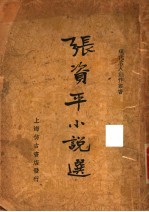 現代名人創作叢書
張資平小說選
上海仿古書店發行